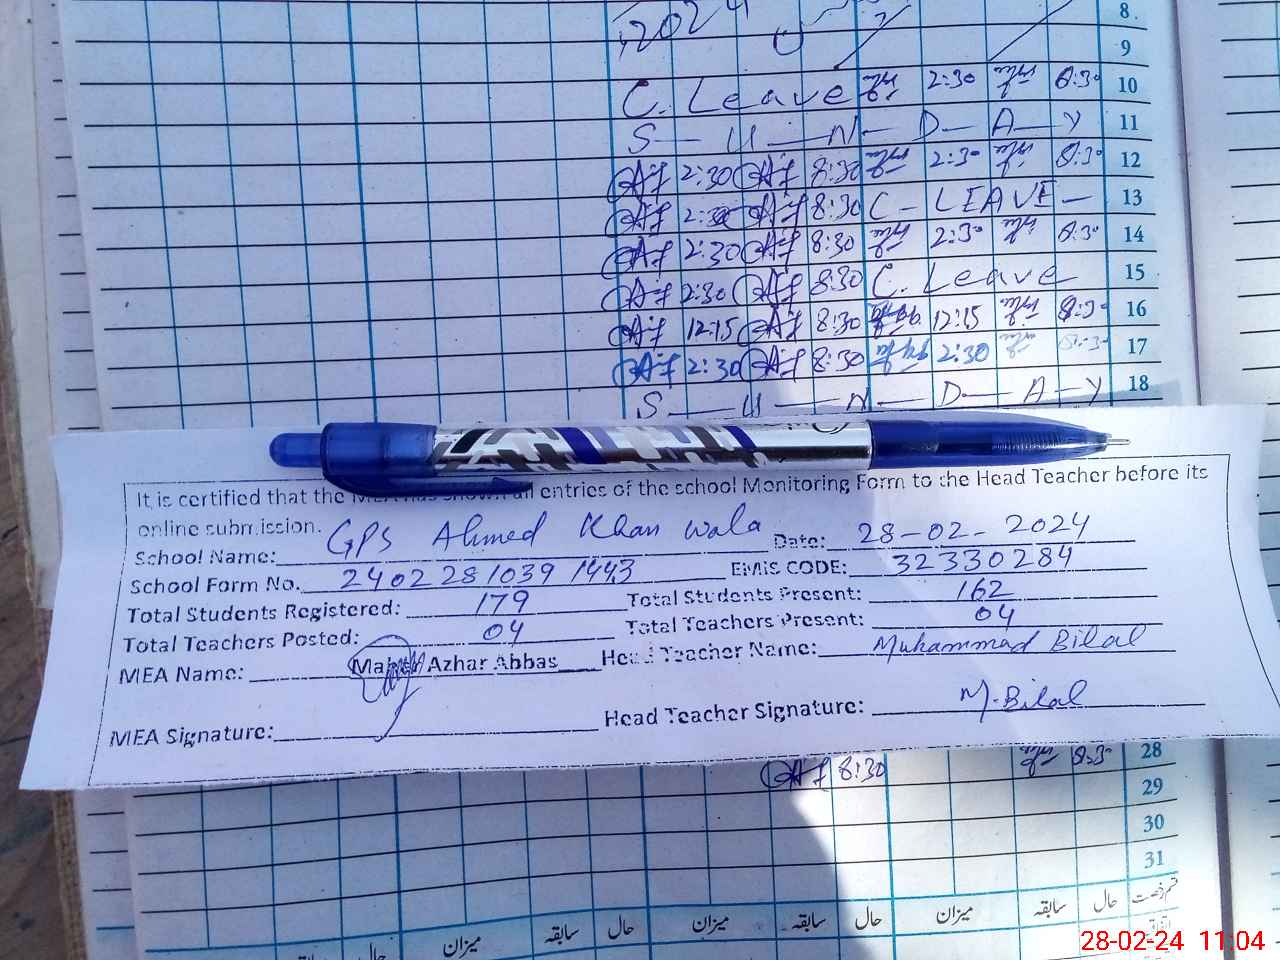 2024
8.
9
C. Leave 2:30 8:30 10
S U N D A Y 11
2:30 8:30 2:30 8:30 12
2:30 8:30 C - LEAVE - 13
2:30 8:30 2:30 8:30 14
2:30 8:30 C. Leave 15
12:15 8:30 12:15 8:30 16
2:30 8:30 2:30 17
S U N D A Y 18
It is certified that the MEA has shown all entries of the school Monitoring Form to the Head Teacher before its
online submission.
School Name: GPS Ahmed Khan wala Date: 28-02-2024
School Form No. 2402281039 1443 EMIS CODE: 32330284
Total Students Registered: 179 Total Students Present: 162
Total Teachers Posted: 04 Total Teachers Present: 04
MEA Name: Azhar Abbas Head Teacher Name: Muhammad Bilal
MEA Signature: Head Teacher Signature: M. Bilal
8:30 8:30 28
29
30
31
حال سابقہ میزان حال سابقہ میزان حال سابقہ میزان
28-02-24 11:04